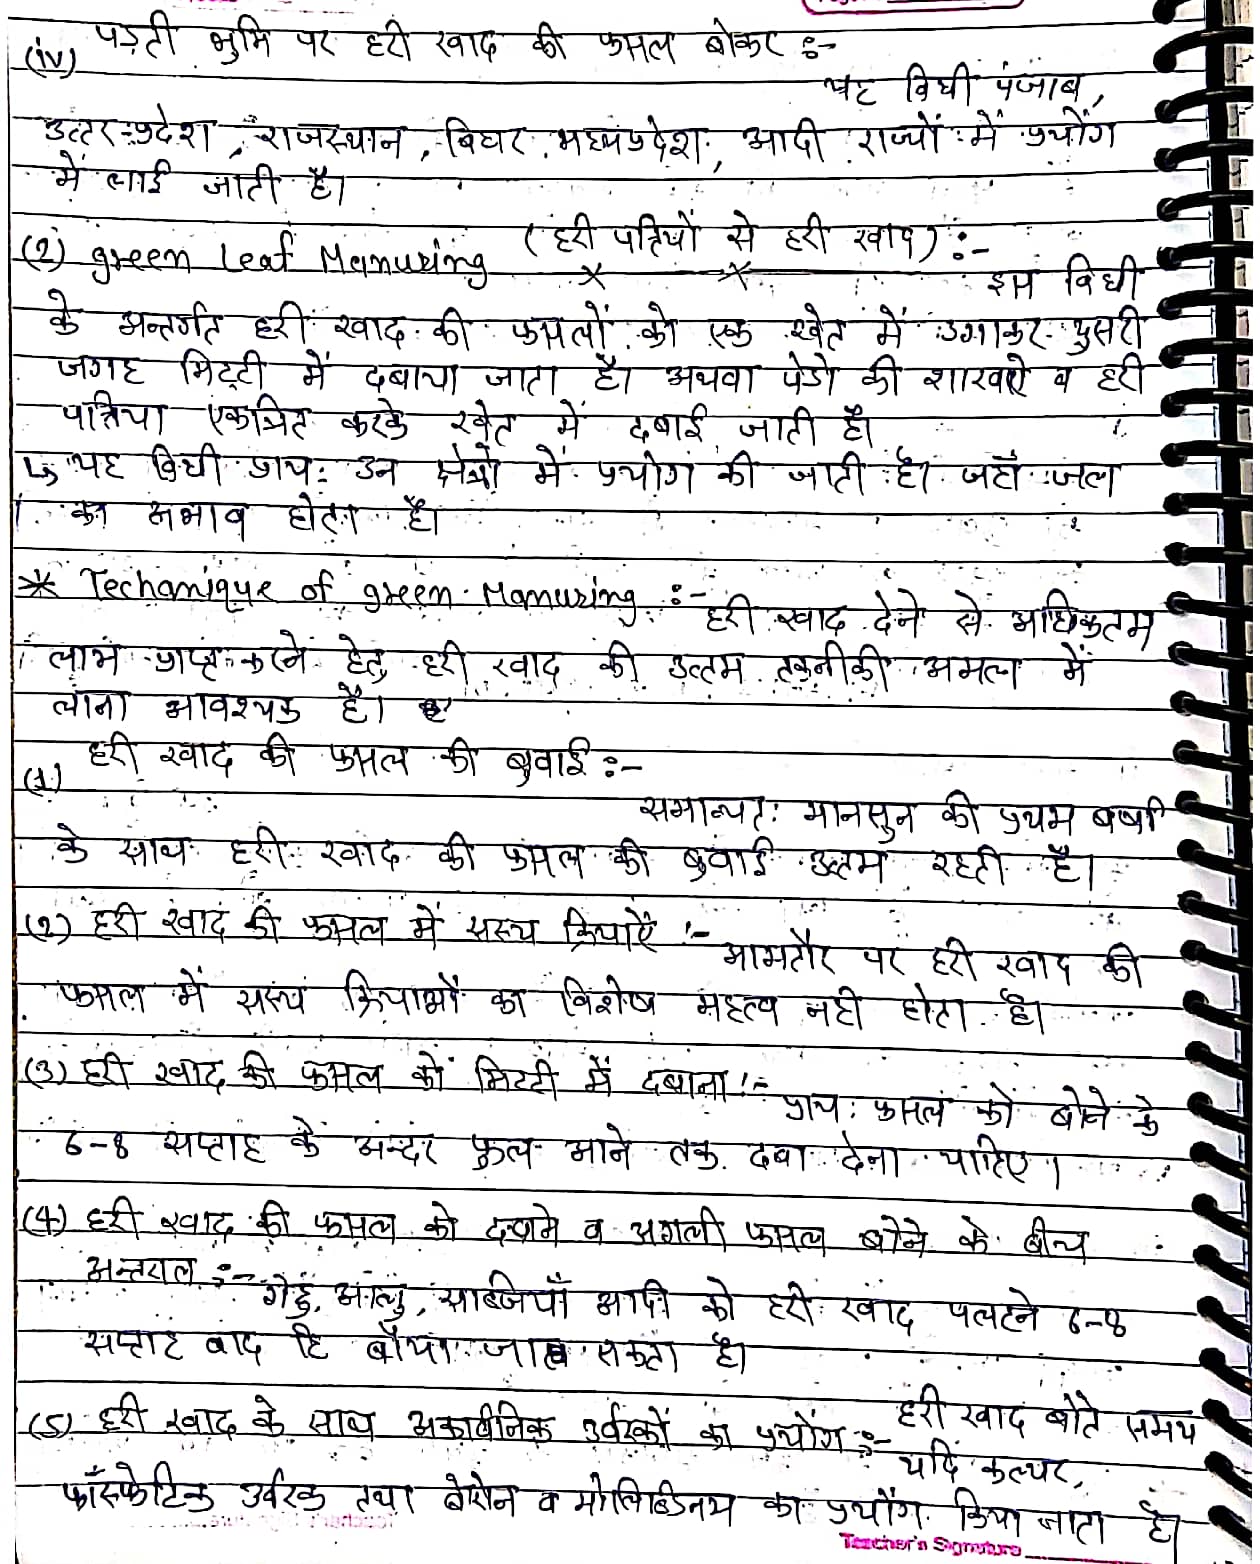 (iv) पड़ती भुमि पर हरी खाद की फसल बोकर :-
यह विधी पंजाब,
उत्तर-प्रदेश, राजस्थान, बिहार, मध्यप्रदेश, आदी राज्यों में प्रयोंग
में लाई जाती है।
(2) green Leaf Manuring (हरी पत्तियों से हरी खाद) :-
इस विधी
के अन्तर्गत हरी खाद की फसलों को एक खेत में उगाकर दुसरी
जगह मिट्टी में दबाया जाता है। अथवा पेडो की शाखाऐ व हरी
पात्तिया एकत्रित करके खेत में दबाई जाती है।
↳ यह विधी प्राय: उन क्षेत्रों में प्रयोग की जाती है। जहाँ जल
का अभाव होता है।
* Techanique of green Manuring :- हरी खाद देने से अधिकतम
लाभ प्राप्त करने हेतु हरी खाद की उत्तम तकनीकी अमल में
लाना आवश्यक है।
(1) हरी खाद की फसल की बुवाई :-
समान्यत: मानसुन की प्रथम वर्षा
के साथ हरी खाद की फसल की बुवाई उत्तम रहती है।
(2) हरी खाद की फसल में सस्य क्रियाऐं :- आमतौर पर हरी खाद की
फसल में सस्य क्रियाओं का विशेष महत्व नही होता है।
(3) हरी खाद की फसल कों मिटटी में दबाना :- प्राय: फसल कों बोने के
6-8 सप्ताह के अन्दर फुल आने तक दबा देना चाहिए।
(4) हरी खाद की फसल को दबाने व अगली फसल बोने के बीच
अन्तराल :- गेहु, आलु, साब्जियाँ आदी को हरी खाद पलटने 6-8
सप्ताह बाद हि बोया जा सकता है।
(5) हरी खाद के साथ अकार्बनिक उर्वरकों का प्रयोंग :- हरी खाद बोते समय
यदि कल्चर,
फॉस्फेटिक उर्वरक तथा बोरोन व मोलिब्डिनम का प्रयोंग किया जाता है।
Teacher's Signature